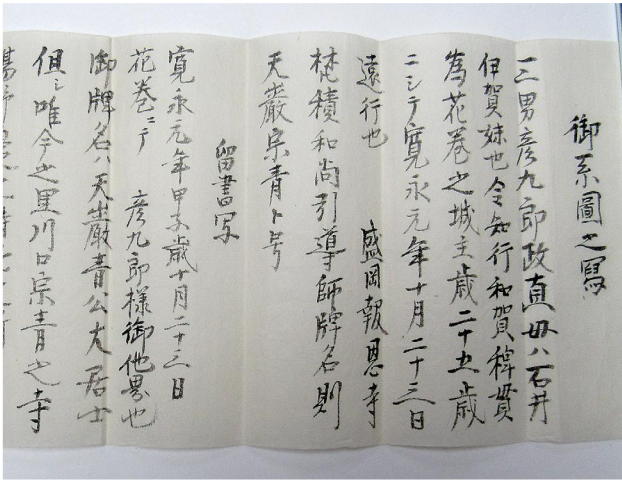 御系圖之寫
一三男彦九郎政直母ハ石井
伊賀妹也令知行和賀稗貫
為花巻之城主歳二十五歳
ニシテ寛永元年十月二十三日
遠行也　盛岡報恩寺
梵積和尚引導師牌名則
天巌宗青ト号
留書写
寛永元年甲子歳十月二十三日
花巻ニテ　彦九郎様御他界也
御牌名ハ天巌青公大居士
但シ唯今之里川口宗青之寺